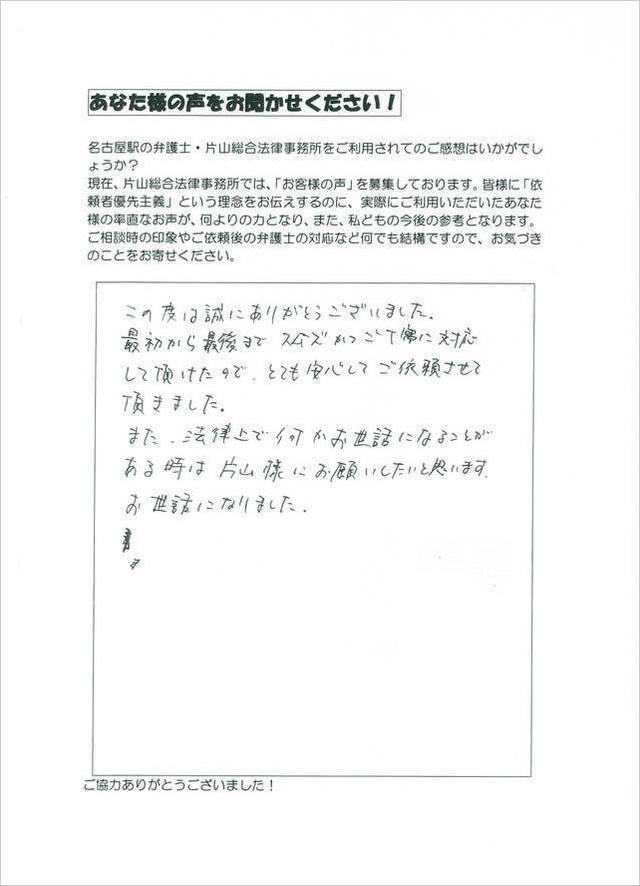 あなた様の声をお聞かせください！
名古屋駅の弁護士・片山総合法律事務所をご利用されてのご感想はいかがでし
ょうか？
現在、片山総合法律事務所では、「お客様の声」を募集しております。皆様に「依
頼者優先主義」という理念をお伝えするのに、実際にご利用いただいたあなた
様の率直なお声が、何よりの力となり、また、私どもの今後の参考となります。
ご相談時の印象やご依頼後の弁護士の対応など何でも結構ですので、お気づき
のことをお寄せください。
この度は誠にありがとうございました。
最初から最後まで スムーズかつご丁寧に対応
して頂けたので、とても安心してご依頼させて
頂きました。
また、法律上で何かお世話になることが
ある時は 片山様にお願いしたいと思います。
お世話になりました。
ご協力ありがとうございました！